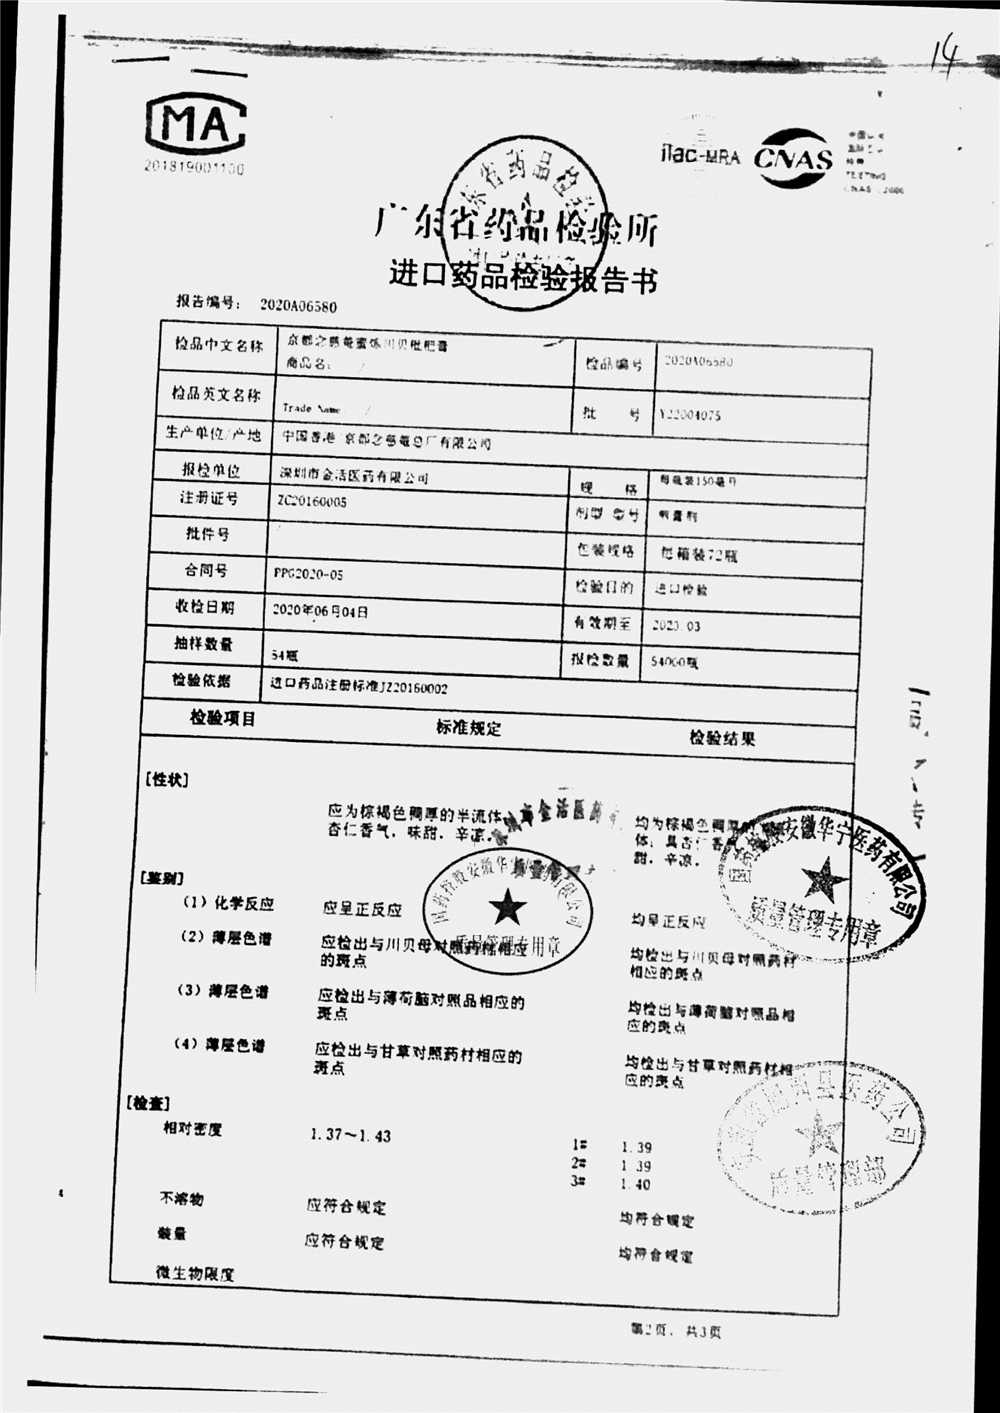 14
MA
201819001100
ilac-MRA
CNAS
TESTING
广东省药品检验所
进口药品检验报告书
报告编号： 2020A06580
检品中文名称 京都念慈菴蜜炼川贝枇杷膏
商品名： /
检品编号 2020A06580
检品英文名称
Trade Name /
批 号 Y22004075
生产单位/产地 中国香港 京都念慈菴总厂有限公司
报检单位 深圳市金活医药有限公司
规 格 每瓶装150毫升
注册证号 ZC20160005
剂型 型号 煎膏剂
批件号
包装规格 每箱装72瓶
合同号 PPG2020-05
检验目的 进口检验
收检日期 2020年06月04日
有效期至 2023.03
抽样数量 54瓶
报检数量 54000瓶
检验依据 进口药品注册标准JZ20160002
检验项目 标准规定 检验结果
[性状]
应为棕褐色稠厚的半流体
杏仁香气，味甜、辛凉。
均为棕褐色稠厚的
体；具杏仁香气
甜、辛凉。
[鉴别]
(1) 化学反应 应呈正反应 均呈正反应
(2) 薄层色谱 应检出与川贝母对照药材相应
的斑点
均检出与川贝母对照药材
相应的斑点
(3) 薄层色谱 应检出与薄荷脑对照品相应的
斑点
均检出与薄荷脑对照品相
应的斑点
(4) 薄层色谱 应检出与甘草对照药材相应的
斑点
均检出与甘草对照药材相
应的斑点
[检查]
相对密度 1.37～1.43
1# 1.39
2# 1.39
3# 1.40
不溶物 应符合规定 均符合规定
装量 应符合规定 均符合规定
微生物限度
国药控股安徽华宁医药有限公司
质量管理专用章
国药控股安徽华宁医药有限公司
质量管理专用章
医药公司
质量管理部
第2页，共3页